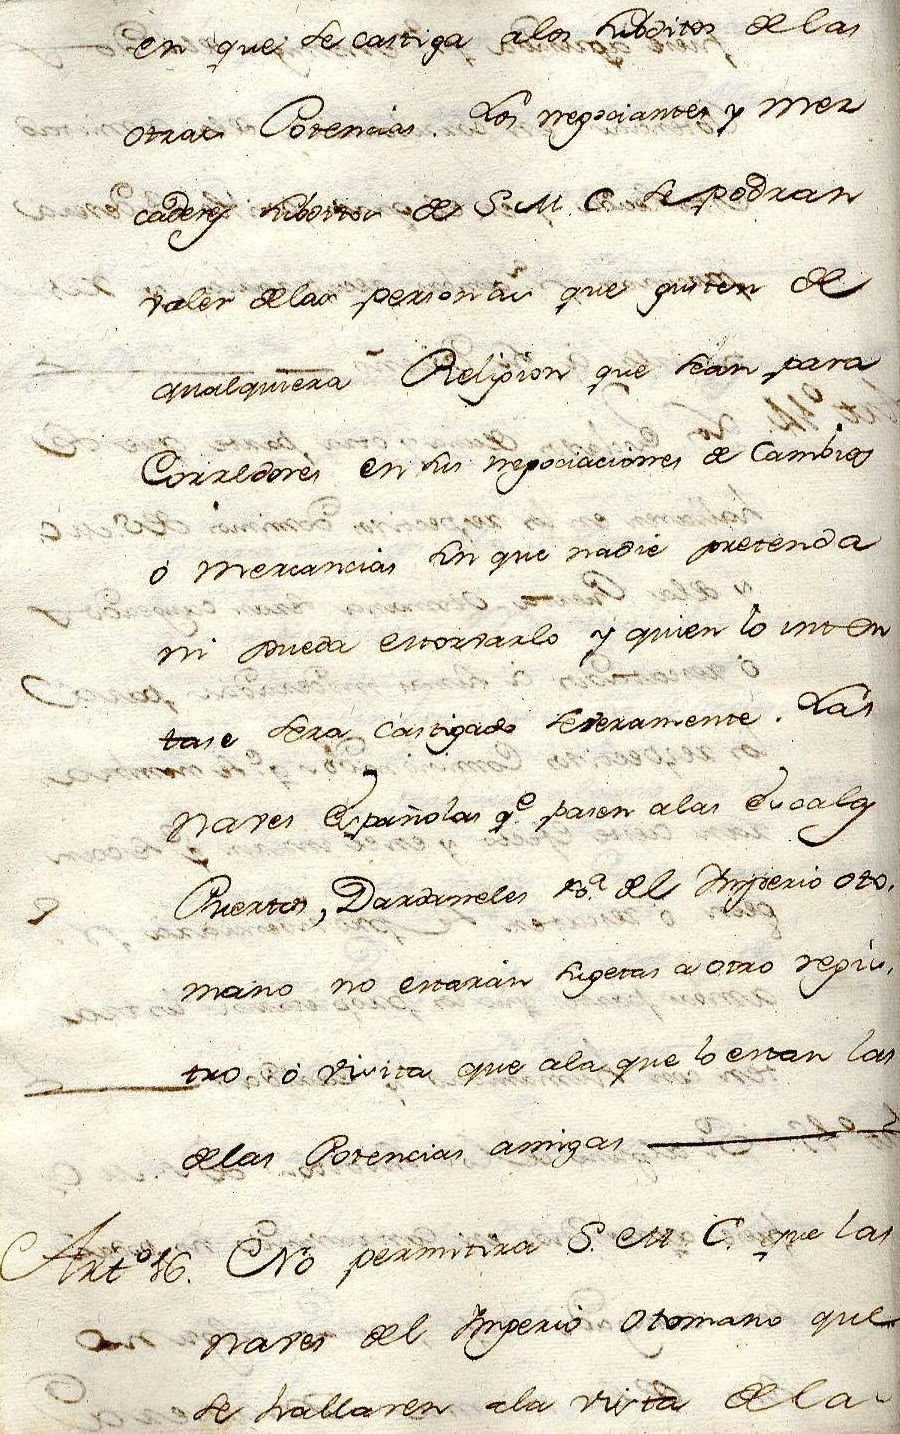 en que se castiga alos subditos de las
otras Potencias. Los negociantes y mer
caderes subditos de S. M. C. se podran
valer delas personas que gusten de
qualquiera Religion que sean para
Corredores en sus negociaciones de Cambios
ó mercancias sin que nadie pretenda
ni pueda estorvarlo y quien lo inten
tase sera castigado severamente. Las
naves Españolas qe. pasen a las
Puertos, Dardaneles &a. del Imperio oto.
mano no estarán sugetas a otro regis.
tro ó visita que ala que lo estan las
delas Potencias amigas
Arto. 16. No permitira S. M. C. que las
naves del Imperio Otomano que
se hallaren ala vista dela